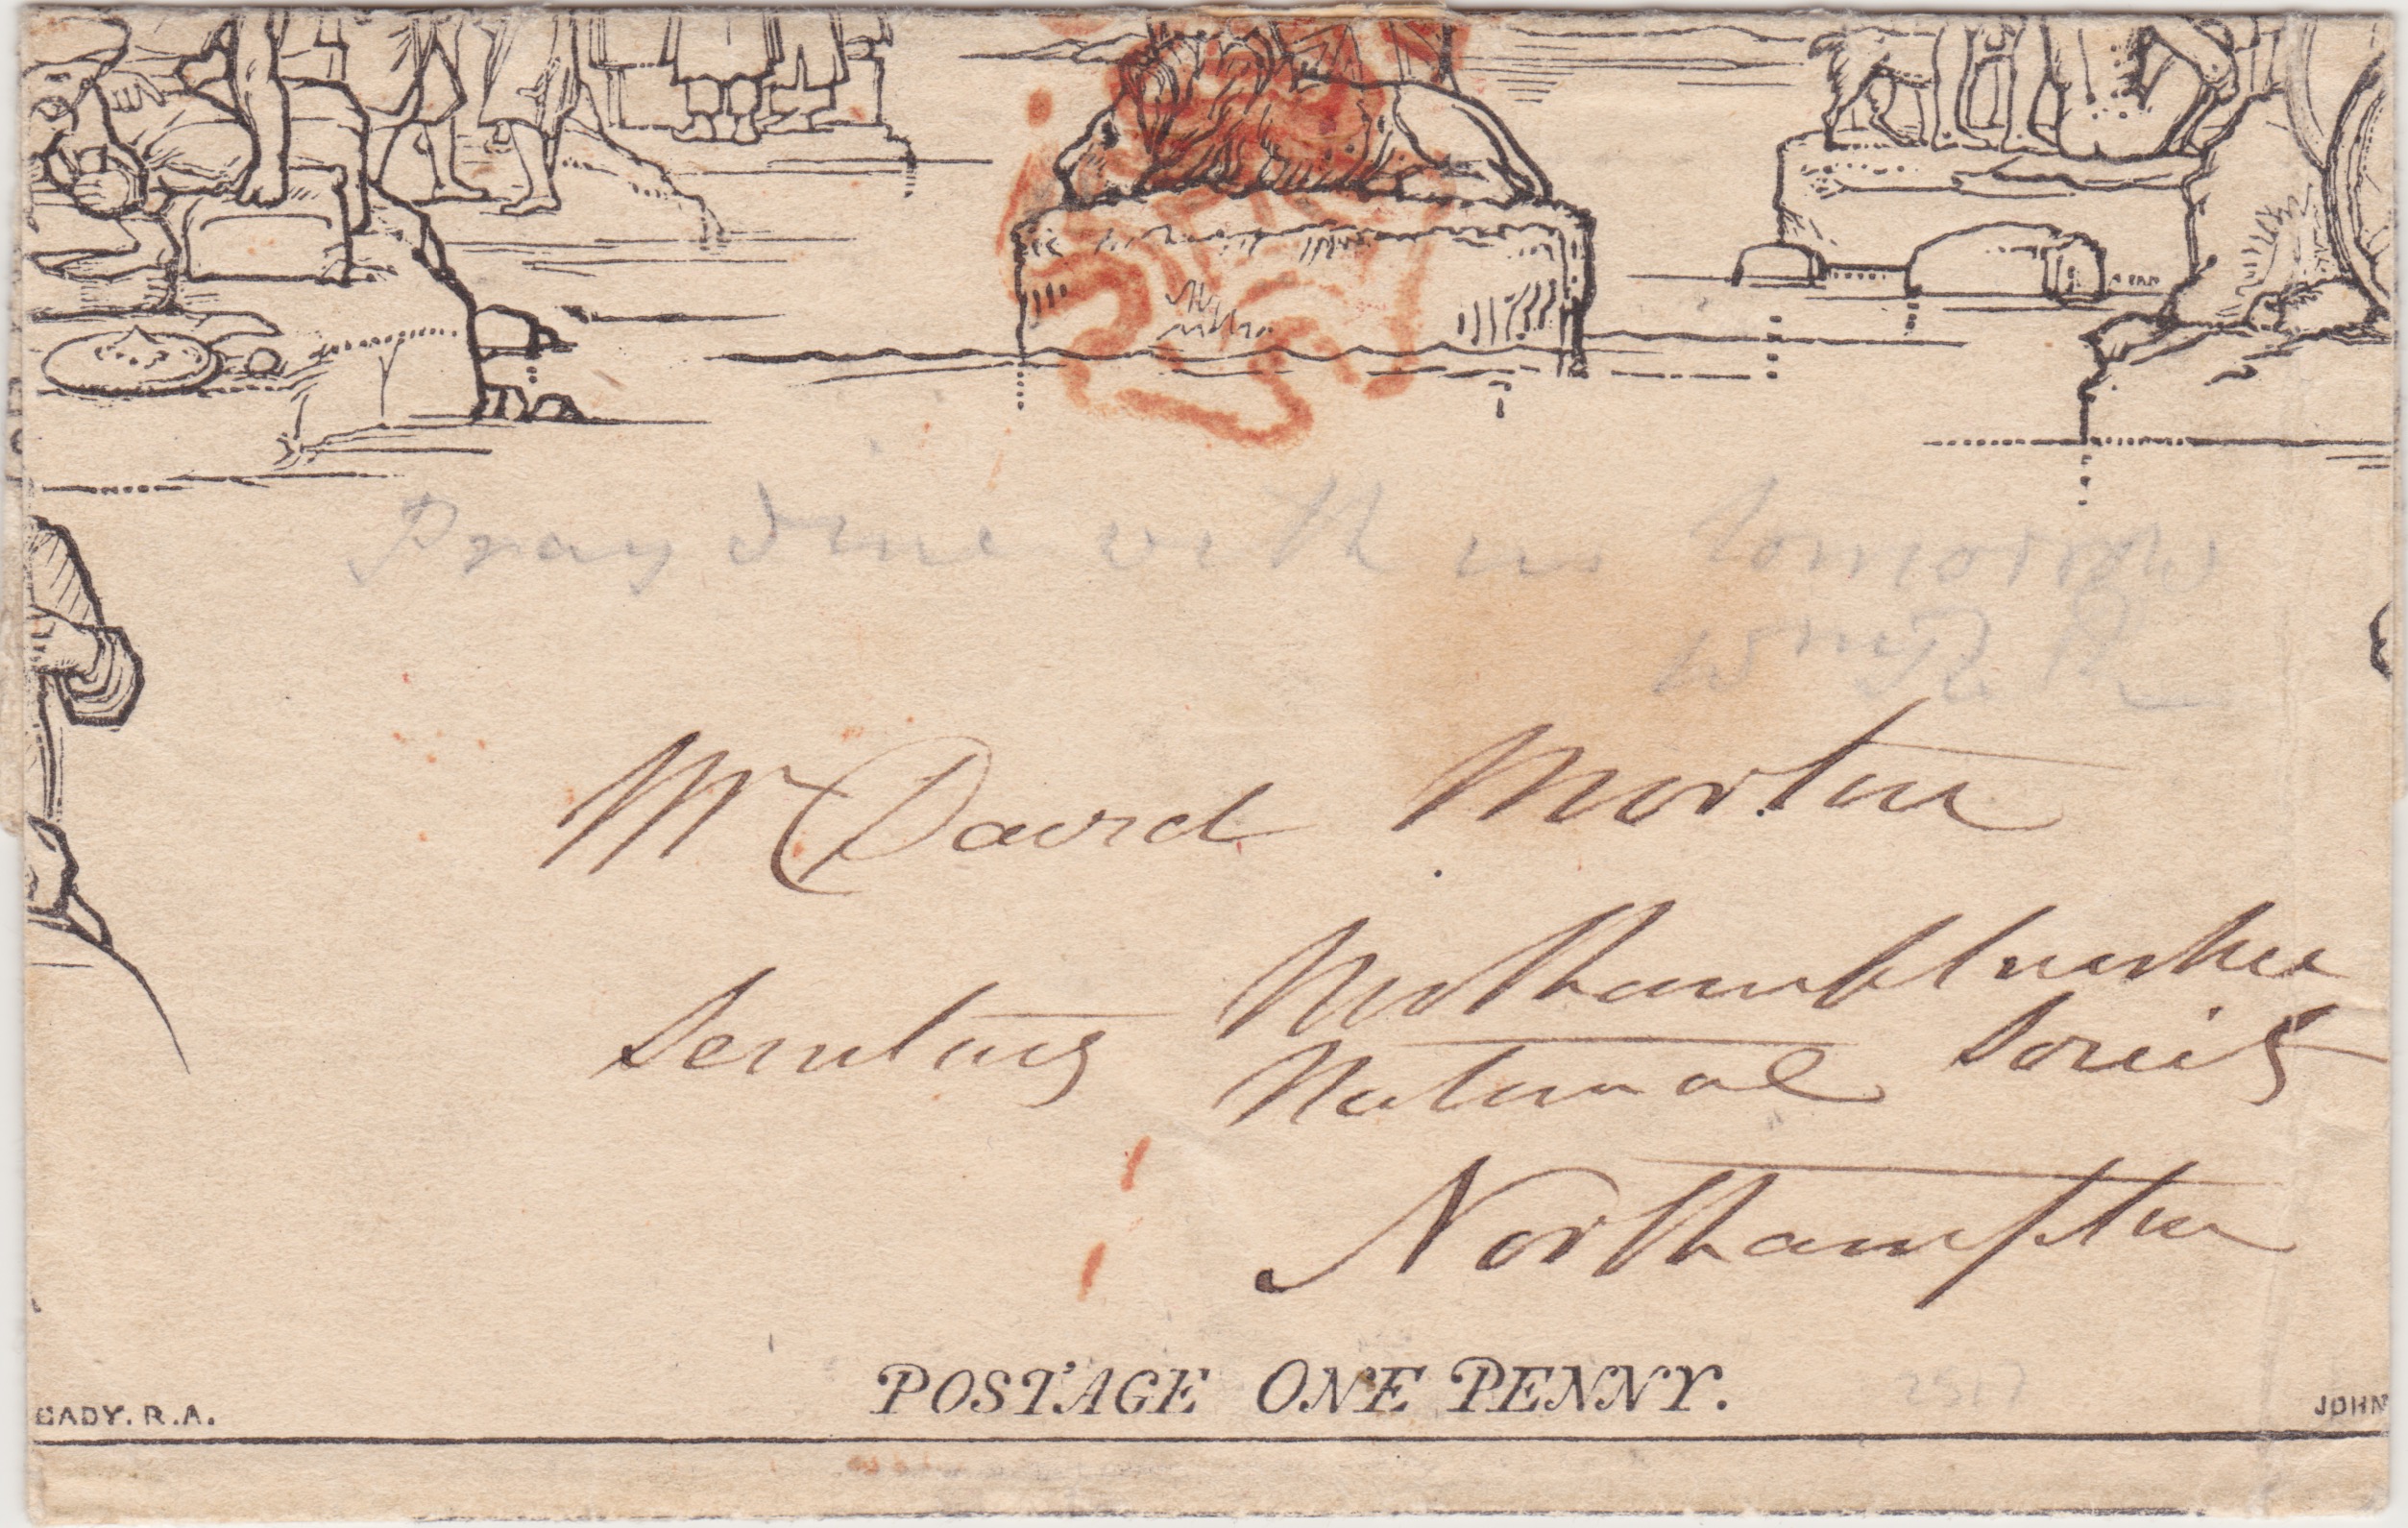 Pray dine with us tomorrow
Mr David Morton
Secretary Northamptonshire
National Society
Northampton
POSTAGE ONE PENNY.
2517
EADY. R.A.
JOHN